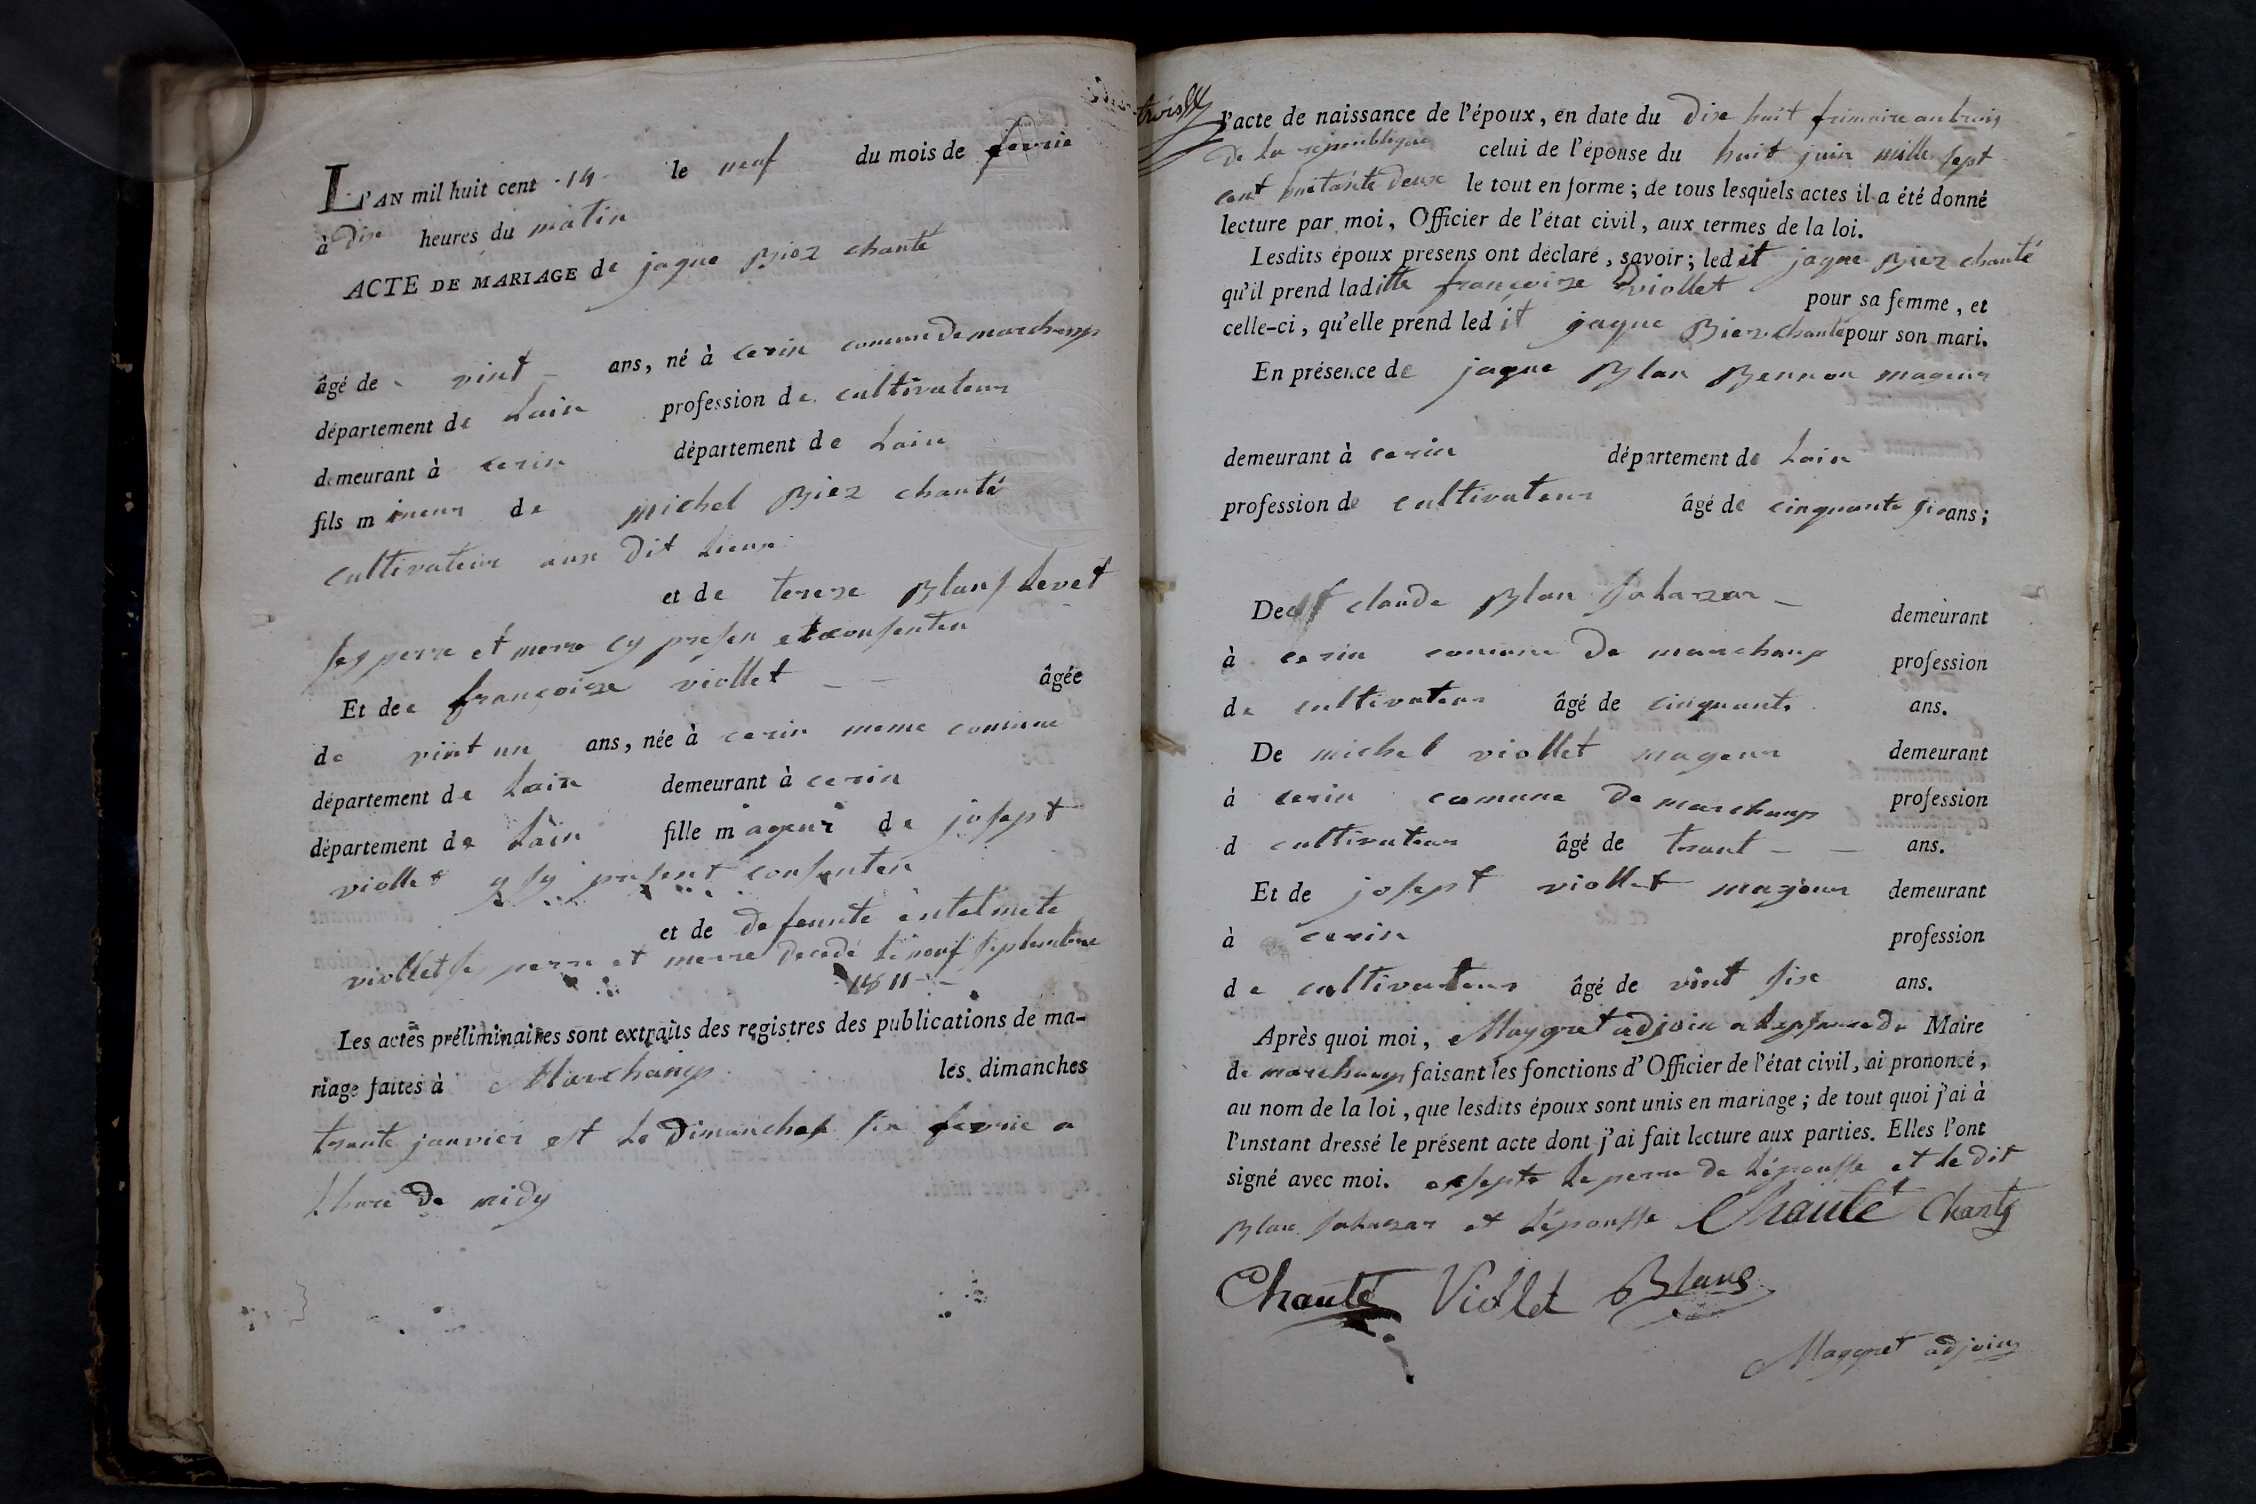 L'AN mil huit cent -14- le neuf du mois de fevrie
à Dix heures du matin
ACTE DE MARIAGE de jaque Biez chanté
âgé de vint ans, né à cerin comune De marchamp
département de Lain profession de cultivateur
demeurant à cerin département de Lain
fils mineur de michel Biez chanté
cultivateur aux Dit Lieux
et de tereze Blanf Levet
ses perre et merre cy presen et consenten
Et dee françoize viollet âgée
de vint un ans, née à cerin meme comune
département de Lain demeurant à cerin
département de Lain fille mageur de josept
viollet y sy present consenten
et de defeunte entelmete
viollet ses perre et merre decedé le neuf septembre
1811
Les actes préliminaires sont extraits des registres des publications de ma-
riage faites à Marchamp les dimanches
trante janvier est Le Dimanches six fevrie a
Lhure De midy
trois
l'acte de naissance de l'époux, en date du Dix huit frimaire an trois
De La republique celui de l'épouse du huit juin mille sept
cent huitante Deux le tout en forme ; de tous lesquels actes il a été donné
lecture par moi, Officier de l'état civil, aux termes de la loi.
Lesdits époux présens ont déclaré, savoir ; ledit jaque Biez chanté
qu'il prend laditte françoize viollet pour sa femme, et
celle-ci, qu'elle prend ledit jaque Biez chanté pour son mari.
En présence de jaque Blan Bennon mageur
demeurant à cerin département de Lain
profession de cultivateur âgé de cinquante six ans ;
De claude Blan Salazar demeurant
à cerin comune De marchamp profession
de cultivateur âgé de cinquante ans.
De michel viollet mageur demeurant
à cerin comune De marchamp profession
d cultivateur âgé de trant ans.
Et de josept viollet majeur demeurant
à cerin profession
de cultivateur âgé de vint six ans.
Après quoi moi, Maygret adjoin a Lapsance du Maire
de marchamp faisant les fonctions d'Officier de l'état civil, ai prononcé,
au nom de la loi, que lesdits époux sont unis en mariage ; de tout quoi j'ai à
l'instant dressé le présent acte dont j'ai fait lecture aux parties. Elles l'ont
signé avec moi. exsepte Le perre de Lépousse et Le dit
Blan Salazar et Lépousse Chanté Chanté
Chanté Viollet Blanc
Maygret adjoin